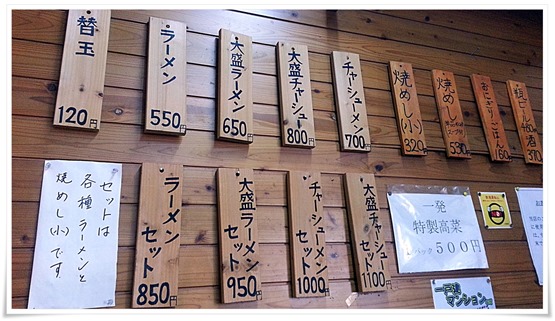 替玉
120円
ラーメン
550円
大盛ラーメン
650円
大盛チャーシュー
800円
チャーシューメン
700円
焼めし(小)
320
焼めし
530
おにぎり
ごはん
ラーメン
セット
850円
大盛ラーメン
セット
950円
チャーシューメン
セット
1000円
大盛チャーシュー
セット
1100円
セットは
各種ラーメンと
焼めし(小)です
一発
特製高菜
パック500円
一戸建
マンション